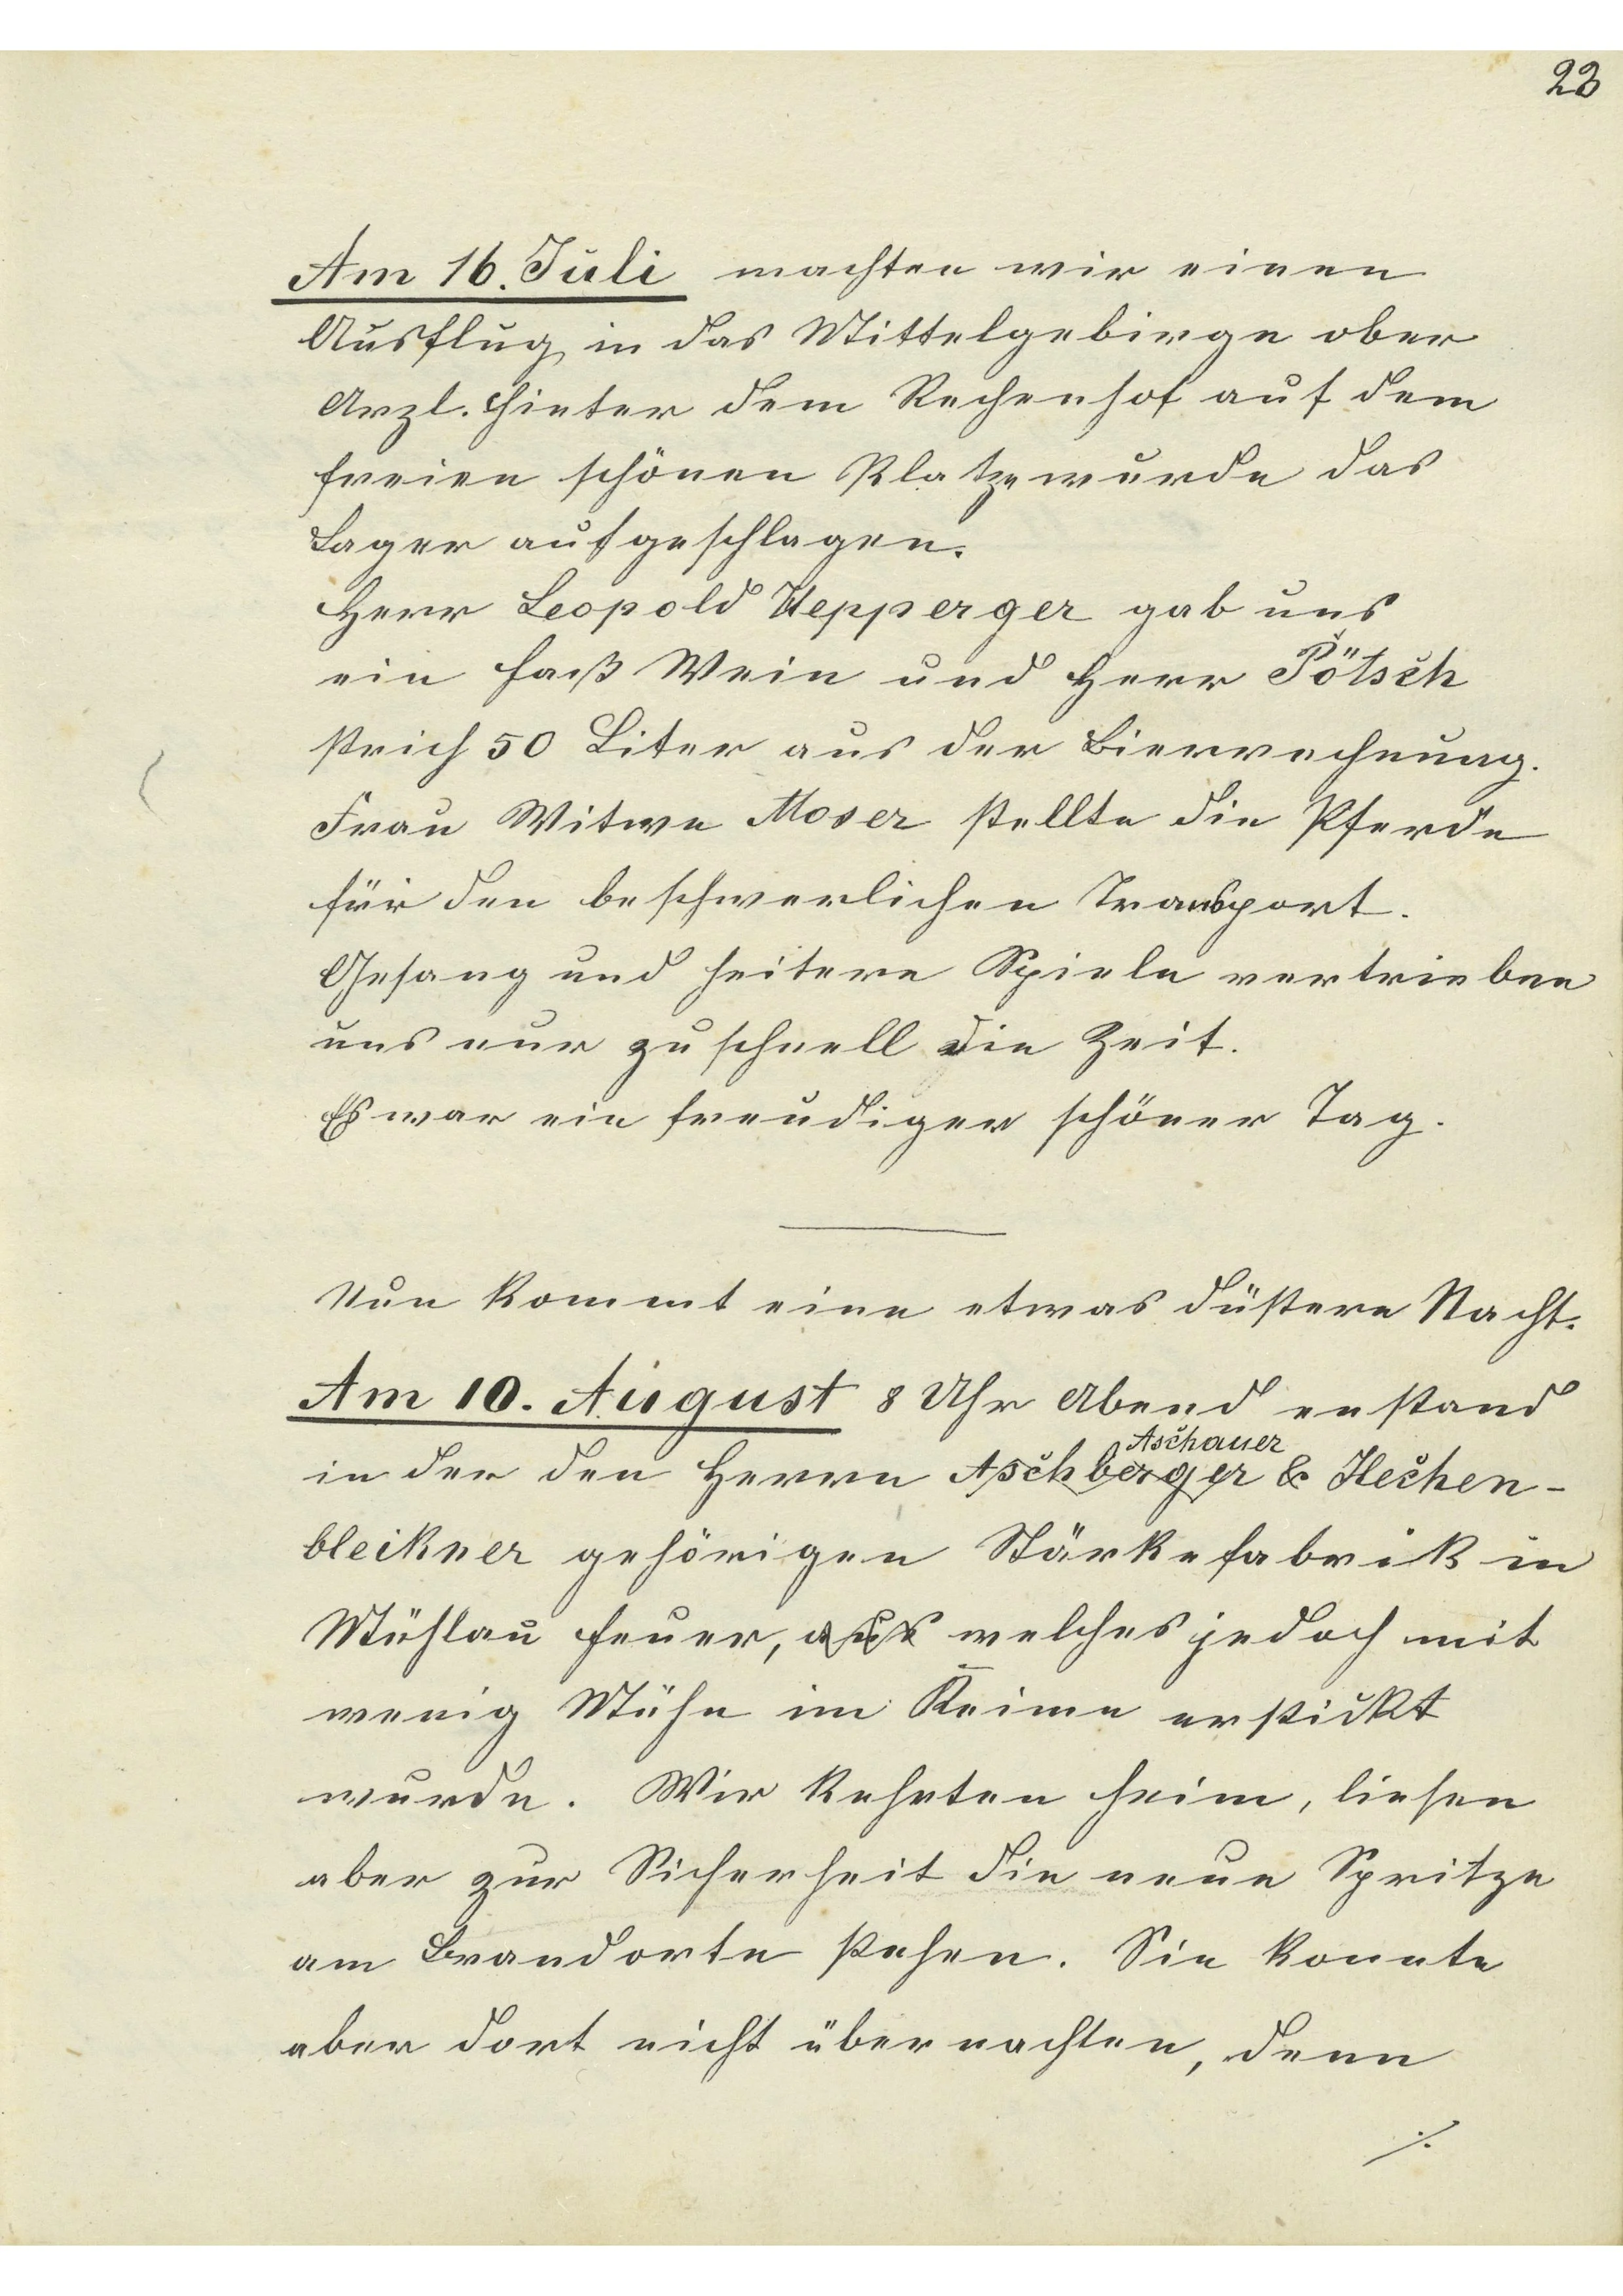 23
Am 16. Juli machten wir einen
Ausflug in das Mittelgebirge ober
Arzl. Hinter dem Rechenhof auf dem
freien schönen Platze wurde das
Lager aufgeschlagen.
Herr Leopold Hepperger gab uns
ein Faß Wein und Herr Pötsch
strich 50 Liter aus der Bierrechnung.
Frau Witwe Moser stellte die Pferde
für den beschwerlichen Transport.
Gesang und heitere Spiele vertrieben
uns nur zu schnell die Zeit.
Es war ein freudiger schöner Tag.
Nun kommt eine etwas düstere Nacht.
Am 10. August 8 Uhr Abend enstand
Aschauer
in der den Herrn Aschberger & Hechen-
bleikner gehörigen Stärkefabrik in
Mühlau Feuer, aus welches jedoch mit
wenig Mühe im Keime erstickt
wurde. Wir kehrten heim, liesen
aber zur Sicherheit die neue Spritze
am Brandorte stehen. Sie konnte
aber dort nicht übernachten, denn
./.